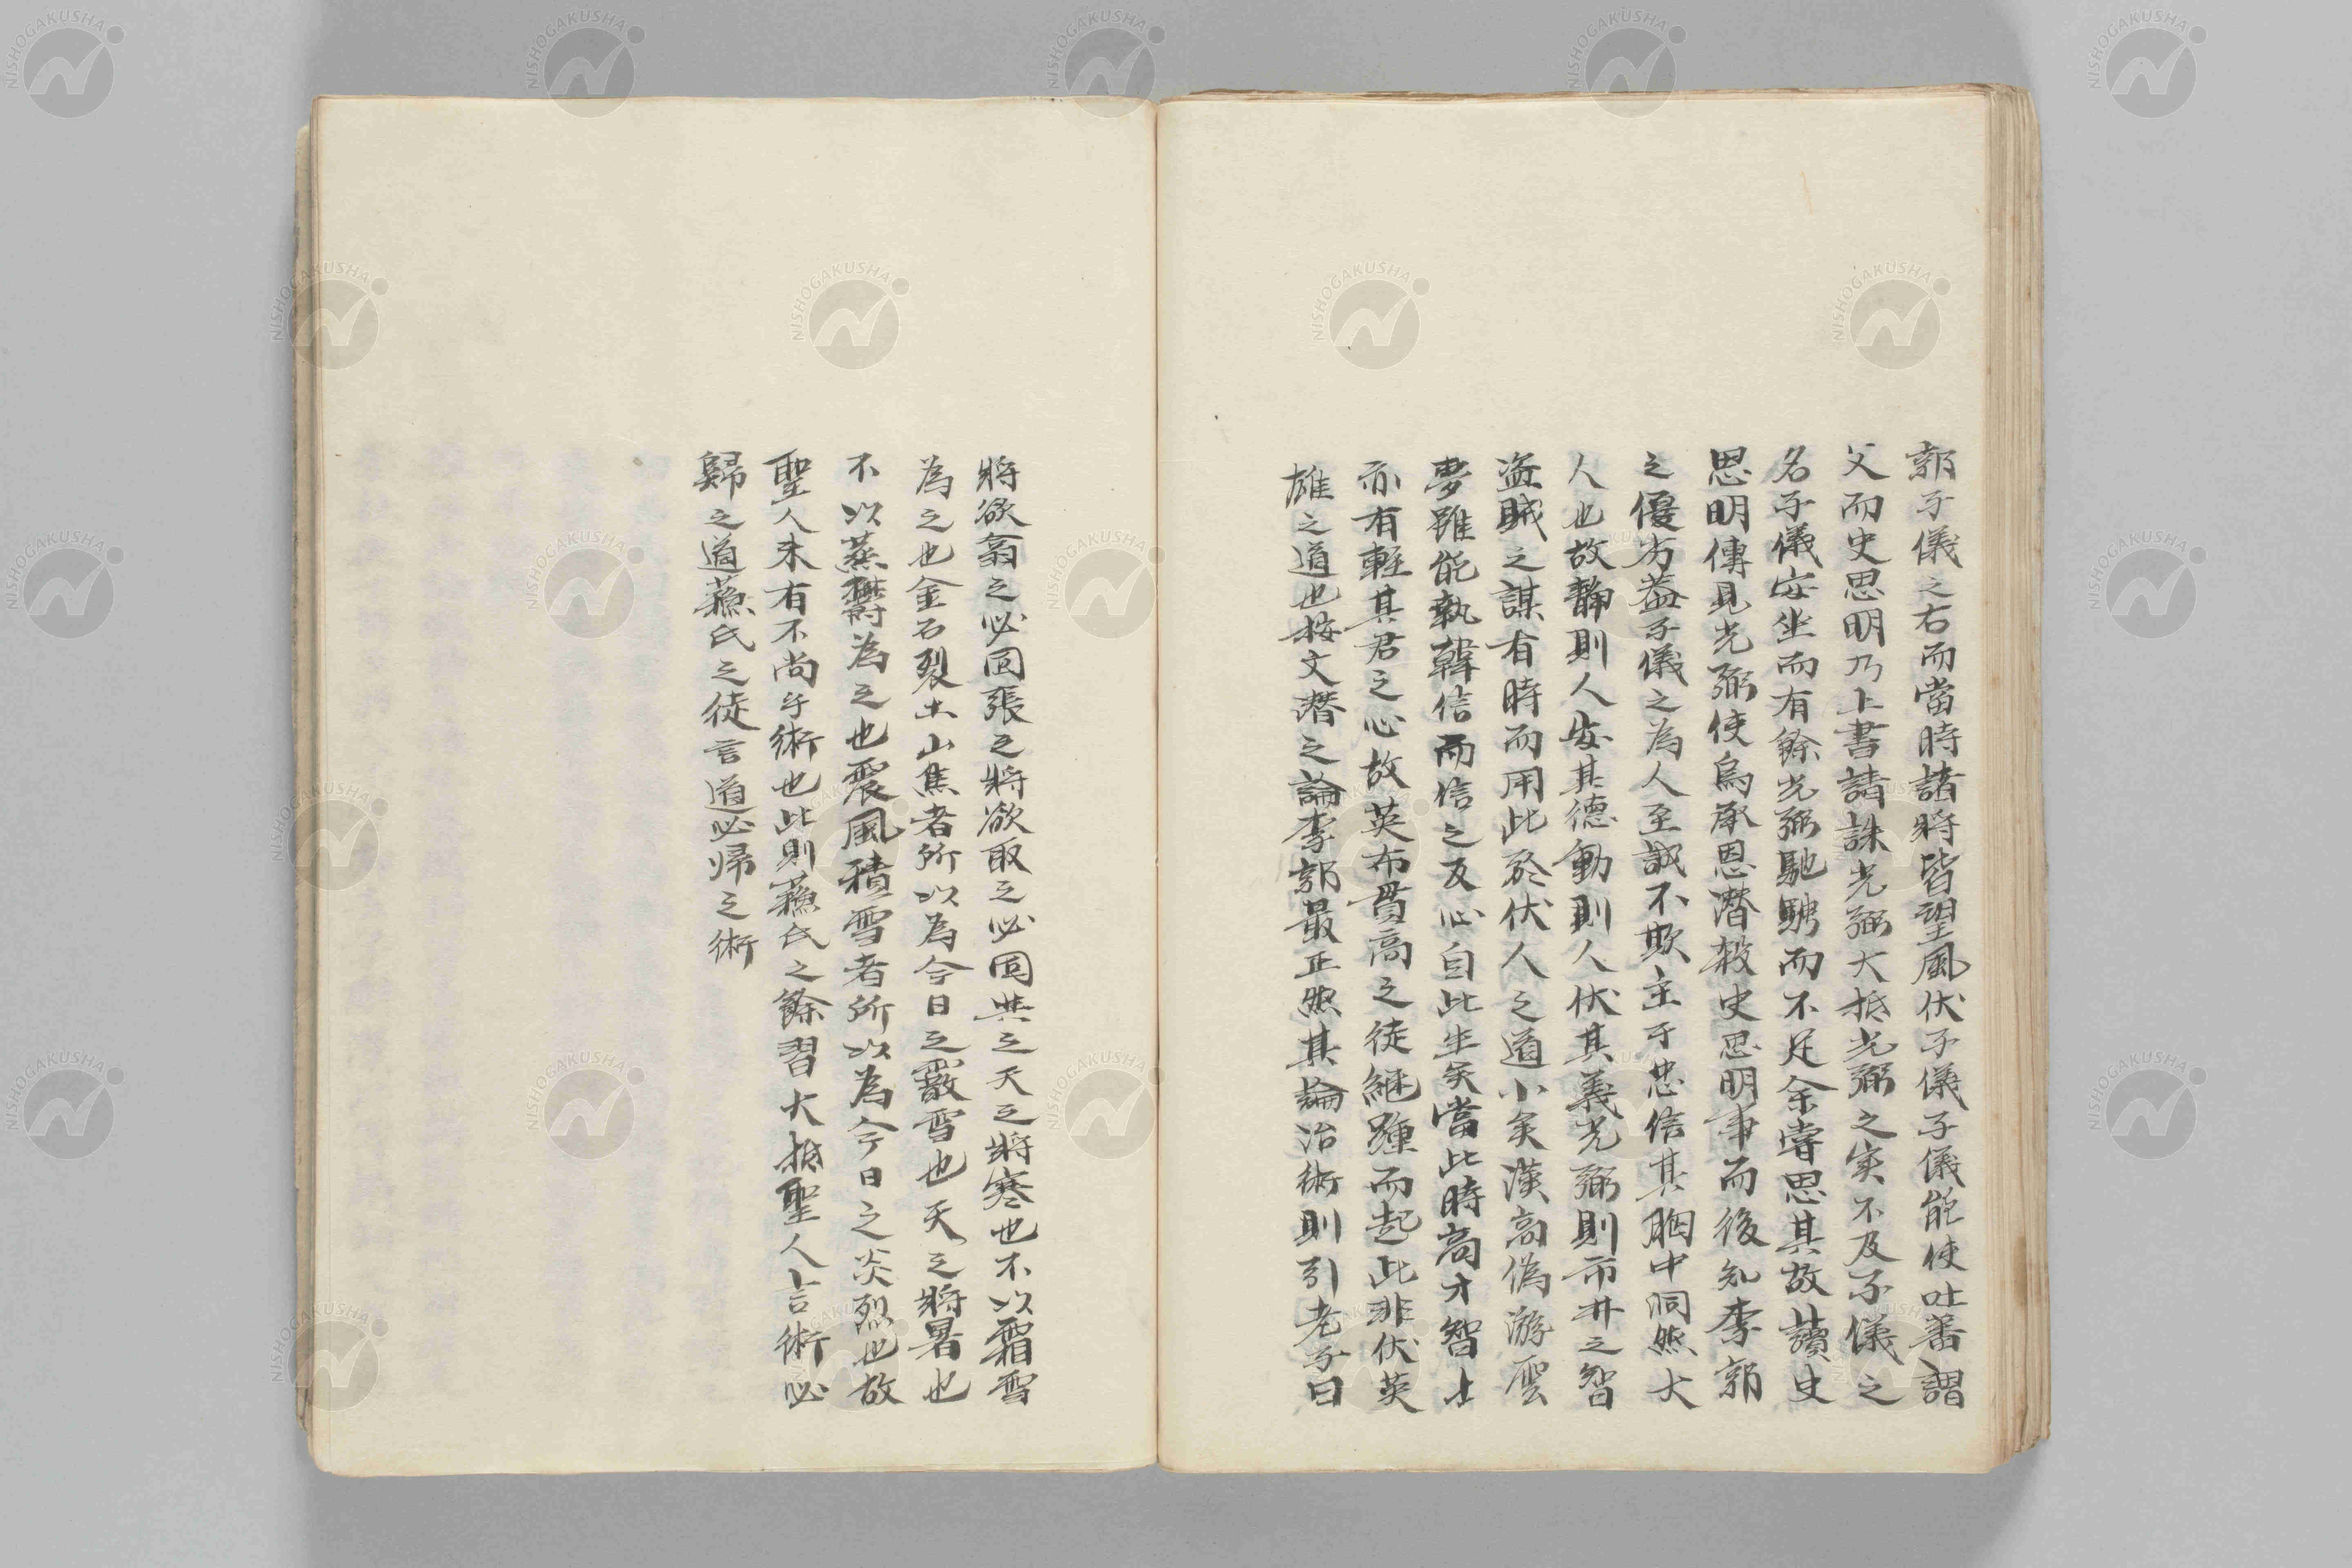 郭子儀之右而當時諸將皆望風伏子儀子儀能使吐蕃謂
父而史思明乃上書請誅光弼大抵光弼之実不及子儀之
名子儀安坐而有餘光弼馳騁而不足余嘗思其故讀史
思明傳見光弼使烏承恩潛殺史思明事而後知李郭
之優劣蓋子儀之為人至誠不欺主于忠信其胸中洞然大
人也故靜則人安其德動則人伏其義光弼則市井之智
盗賊之謀有時而用此於伏人之道小矣漢高偽游雲
夢雖能執韓信而信之反心自此生矣當此時高才智士
亦有輕其君之心故英布貫高之徒継踵而起此非伏英
雄之道也按文潜之論李郭最正然其論治術則引老子曰
將欲翕之必固張之將欲取之必固與之天之將寒也不以霜雪
為之也金石裂土山焦者所以為今日之霰雪也天之將暑也
不以蒸鬱為之也震風積雪者所以為今日之炎烈也故
聖人未有不尚乎術也此則蘓氏之餘習大抵聖人言術必
歸之道蘓氏之徒言道必帰之術
NISHOGAKUSHA